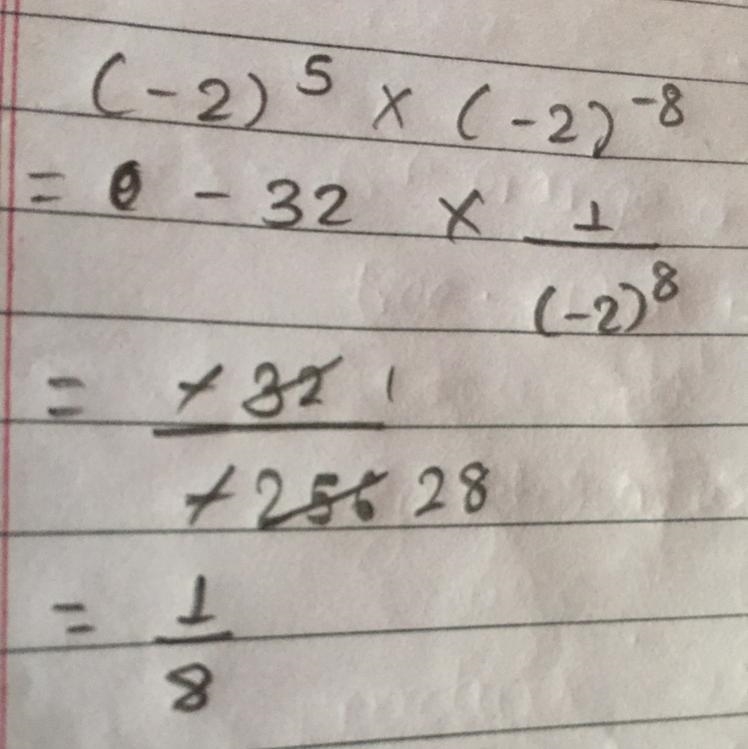 (-2)^5 × (-2)^-8
= - 32 × 1/(-2)^8
= -32 1 / -256 28
= 1/8